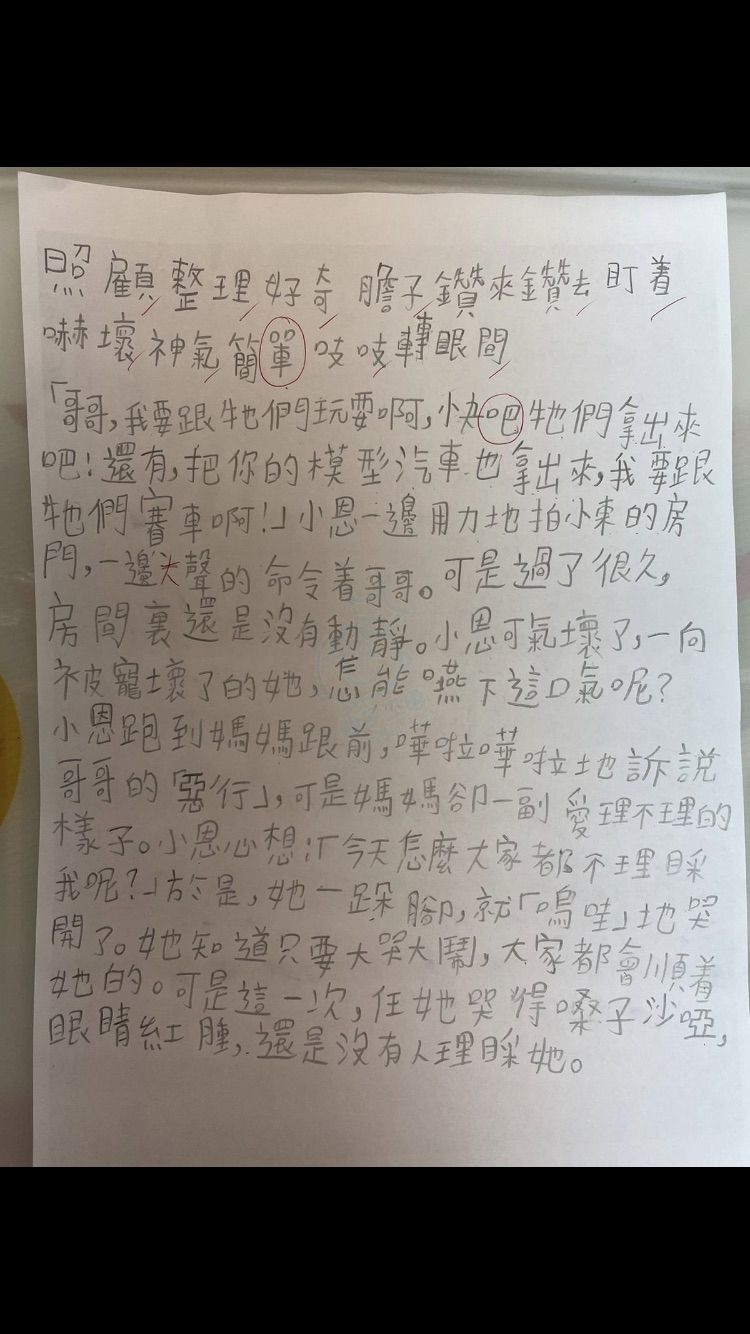 照顧整理好奇膽子鑽來鑽去盯着
嚇壞神氣簡單吱吱轉眼間
「哥哥,我要跟牠們玩耍啊,快吧牠們拿出來
吧!還有,把你的模型汽車也拿出來,我要跟
牠們賽車啊!」小恩一邊用力地拍小東的房
門,一邊大聲的命令着哥哥。可是過了很久,
房間裏還是沒有動靜。小恩可氣壞了,一向
被寵壞了的她,怎能嚥下這口氣呢?
小恩跑到媽媽跟前,嘩啦嘩啦地訴說
哥哥的「惡行」,可是媽媽卻一副愛理不理的
樣子。小恩心想:「今天怎麼大家都不理睬
我呢?」於是,她一跺腳,就「嗚哇」地哭
開了。她知道只要大哭大鬧,大家都會順着
她的。可是這一次,任她哭得嗓子沙啞,
眼睛紅腫,還是沒有人理睬她。